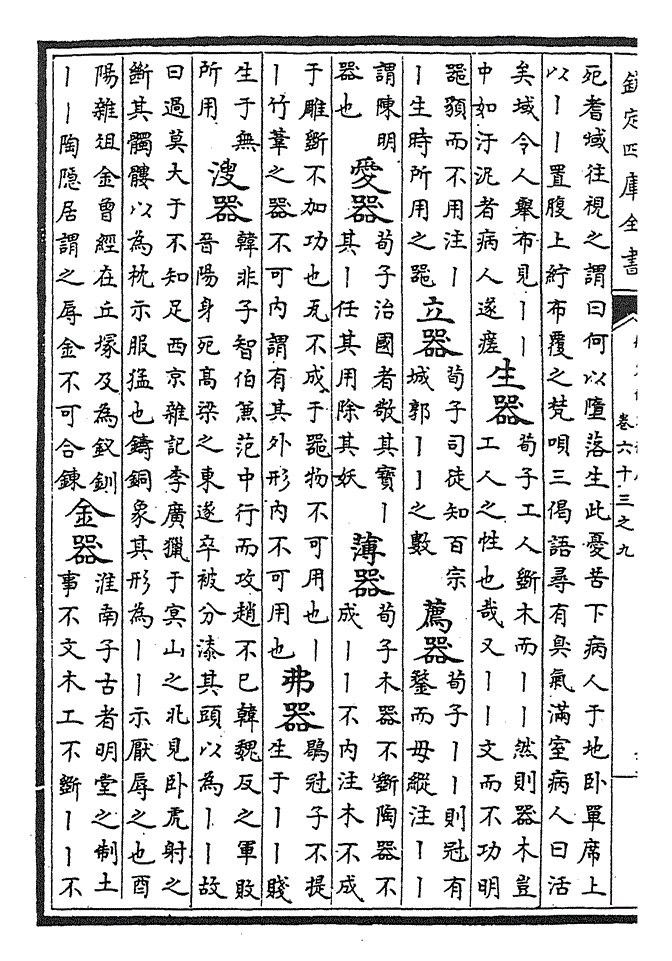 欽定四庫全書
卷六十三之九
死耆域往視之謂曰何以墮落生此憂苦下病人于地卧單席上
以丨丨置腹上紵布覆之梵唄三偈語尋有臭氣滿室病人曰活
矣域令人舉布見丨丨
中如汙泥者病人遂瘥
生器
荀子工人斵木而丨丨然則器木豈
工人之性也哉又丨丨文而不功明
噐額而不用注丨
丨生時所用之噐
立器
荀子司徒知百宗
城郭丨丨之數
薦器
荀子丨丨則冠有
鍪而毋縱注丨丨
謂陳明
器也
愛器
荀子治國者敬其寶丨
其丨任其用除其妖
薄器
荀子木器不斵陶器不
成丨丨不内注木不成
于雕斵不加功也瓦不成于噐物不可用也丨
丨竹葦之器不可内謂有其外形内不可用也
弗器
鶡冠子不提
生于丨丨賤
生于無
所用
溲器
韓非子智伯兼范中行而攻趙不已韓魏反之軍敗
晉陽身死高梁之東遂卒被分漆其頭以為丨丨故
曰過莫大于不知足西京雜記李廣獵于冥山之北見卧虎射之
斷其髑髏以為枕示服猛也鑄銅象其形為丨丨示厭辱之也酉
陽雜俎金曾經在丘塚及為釵釧
丨丨陶隐居謂之辱金不可合鍊
金器
淮南子古者明堂之制土
事不文木工不斵丨丨不